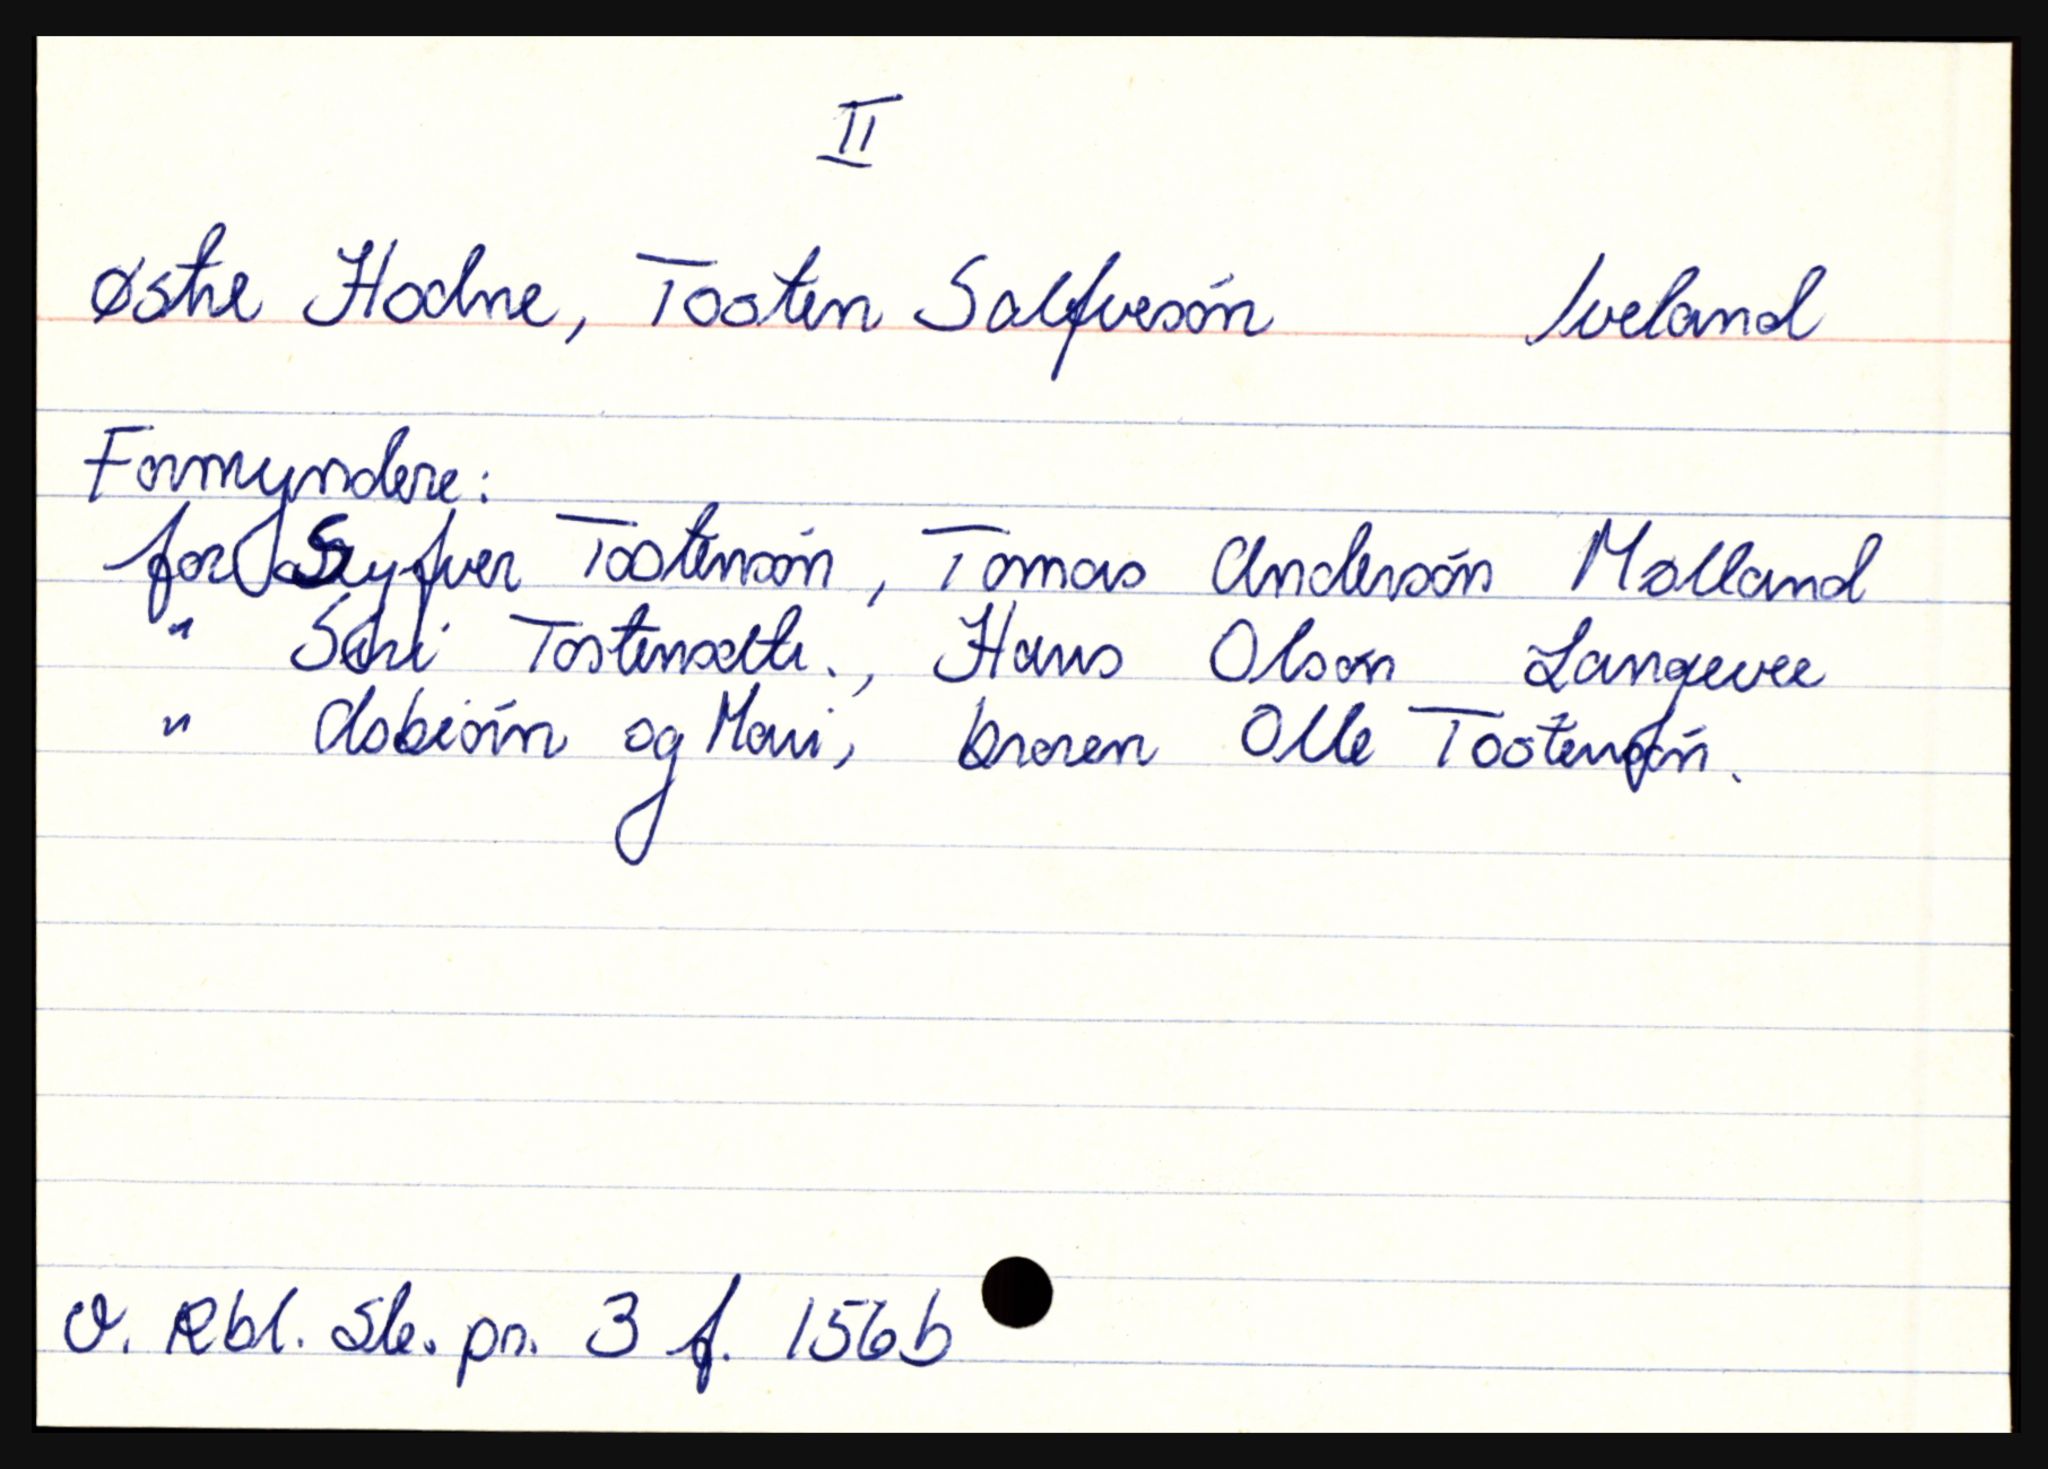 II
Østre Hodne, Tosten Salfvesón Iveland
Formyndere:
for Syfver Tostensón, Tomas Andersón Mølland
" Siri Tostensdtr., Hans Olsón Langevee
" Asbiórn og Mari, broren Olle Tostensón.
V. Rbl. Sk. pr. 3 f. 156b